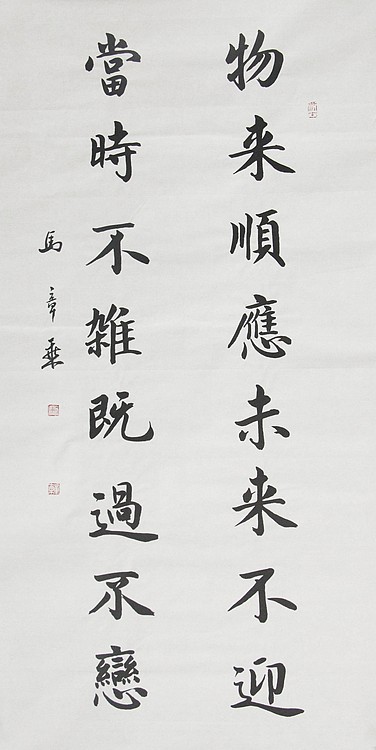 物来順應未来不迎
當時不雜既過不戀
馬章乘